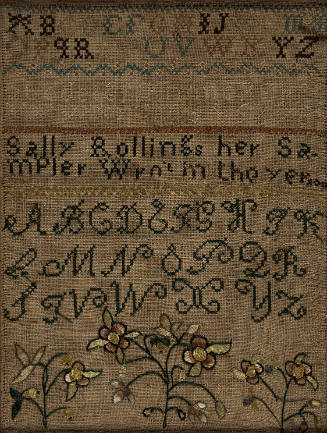 A B E F G H I J M
P Q R U V W X Y Z
Sally Rollings her Sa-
mpler Wro't in the
A B C D E F G H I K
L M N O P Q R
S T V W X Y Z